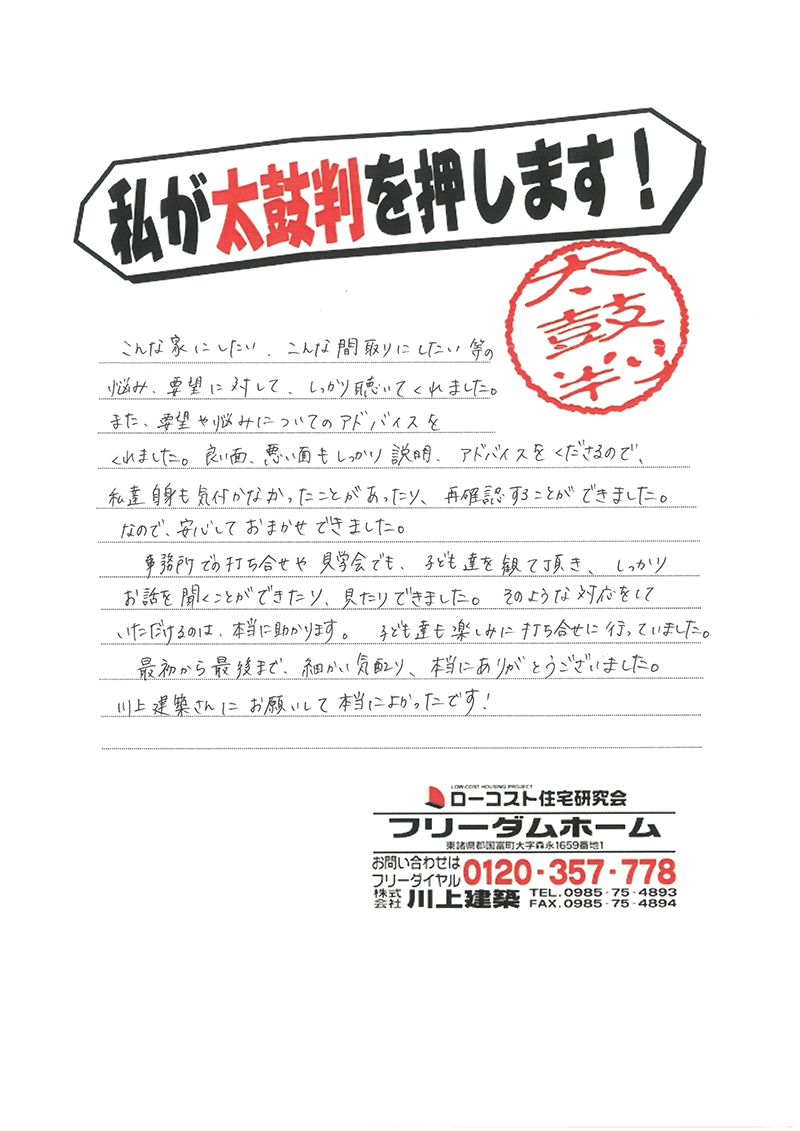 私が太鼓判を押します！
太鼓判
こんな家にしたい、こんな間取りにしたい等の
悩み、要望に対して、しっかり聴いてくれました。
また、要望や悩みについてのアドバイスを
くれました。良い面、悪い面もしっかり説明、アドバイスをくださるので、
私達自身も気付かなかったことがあったり、再確認することができました。
なので、安心しておまかせできました。
事務所での打ち合せや見学会でも、子ども達を観て頂き、しっかり
お話を聞くことができたり、見たりできました。そのような対応をして
いただけるのは、本当に助かります。子ども達も楽しみに打ち合せに行っていました。
最初から最後まで、細かい気配り、本当にありがとうございました。
川上建築さんにお願いして本当によかったです！
LOW-COST HOUSING PROJECT
ローコスト住宅研究会
フリーダムホーム
東諸県郡国富町大字森永1659番地1
お問い合わせは
フリーダイヤル 0120-357-778
株式会社 川上建築 TEL.0985-75-4893
FAX.0985-75-4894